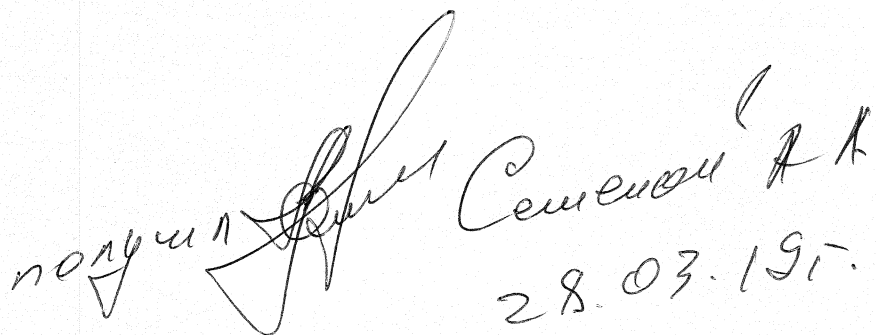 получил Семеной А А
28.03.19г.